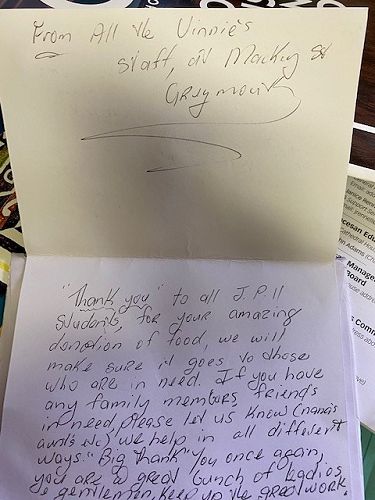 From All the Vinnie's
staff, at Mackay St
Greymouth
"Thank you" to all J.P.II
students, for your amazing
donation of food, we will
make sure it goes to those
who are in need. If you have
any family members, friends
in need, please let us know (nana's
aunt's etc) we help in all different
ways. "Big thank" you once again,
you are a great bunch of ladies
& gentlemen, keep up the great work
Email: ad
Support Se
Email: jennife
ocesan Edu
Cathedral Hous
John Adams (Cha
Manage
Board
s Comm